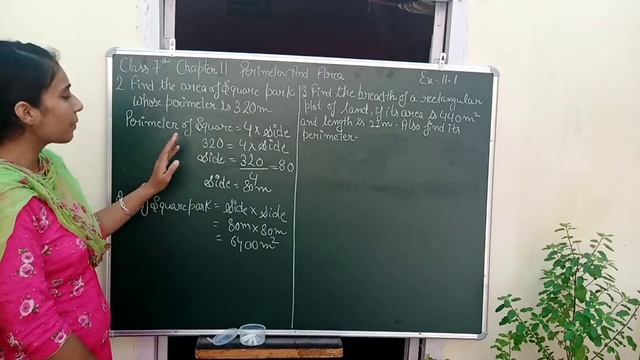 Class 7th Chapter 11 Perimeter And Area Ex-11.1
2 Find the area of Square park
whose perimeter is 320m.
Perimeter of Square = 4 x side
320 = 4 x side
side = 320/4 = 80
side = 80m
of Square park = side x side
= 80m x 80m
= 6400m²
3 Find the breadth of a rectangular
plot of land, if its area is 440m²
and length is 22m. Also find its
perimeter.